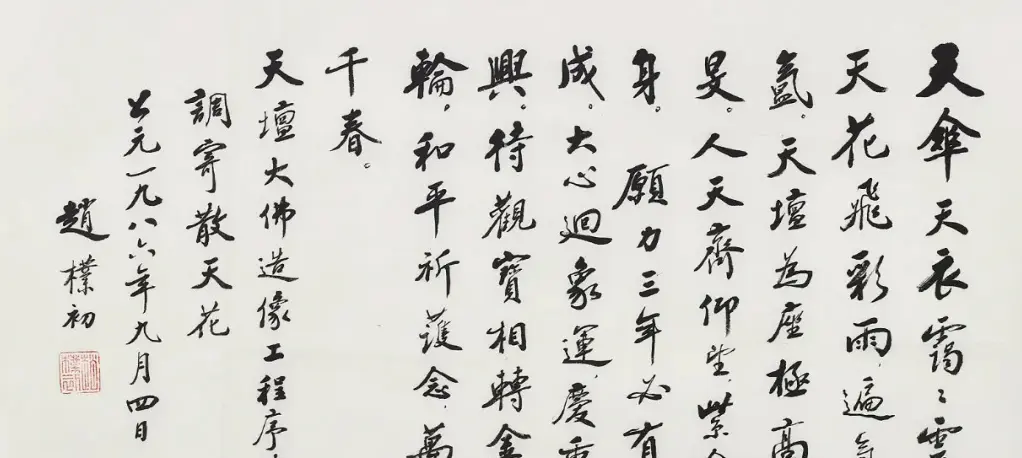 天傘天衣靄〻雲
天花飛彩雨，遍
氤。天壇為座極高
旻。人天齊仰望，紫金
身。　願力三年必有
成。大心迴象運，慶重
興。待觀寶相轉金
輪。和平祈護念，萬
千春。
天壇大佛造像工程序
調寄散天花
公元一九八六年九月四日
趙樸初